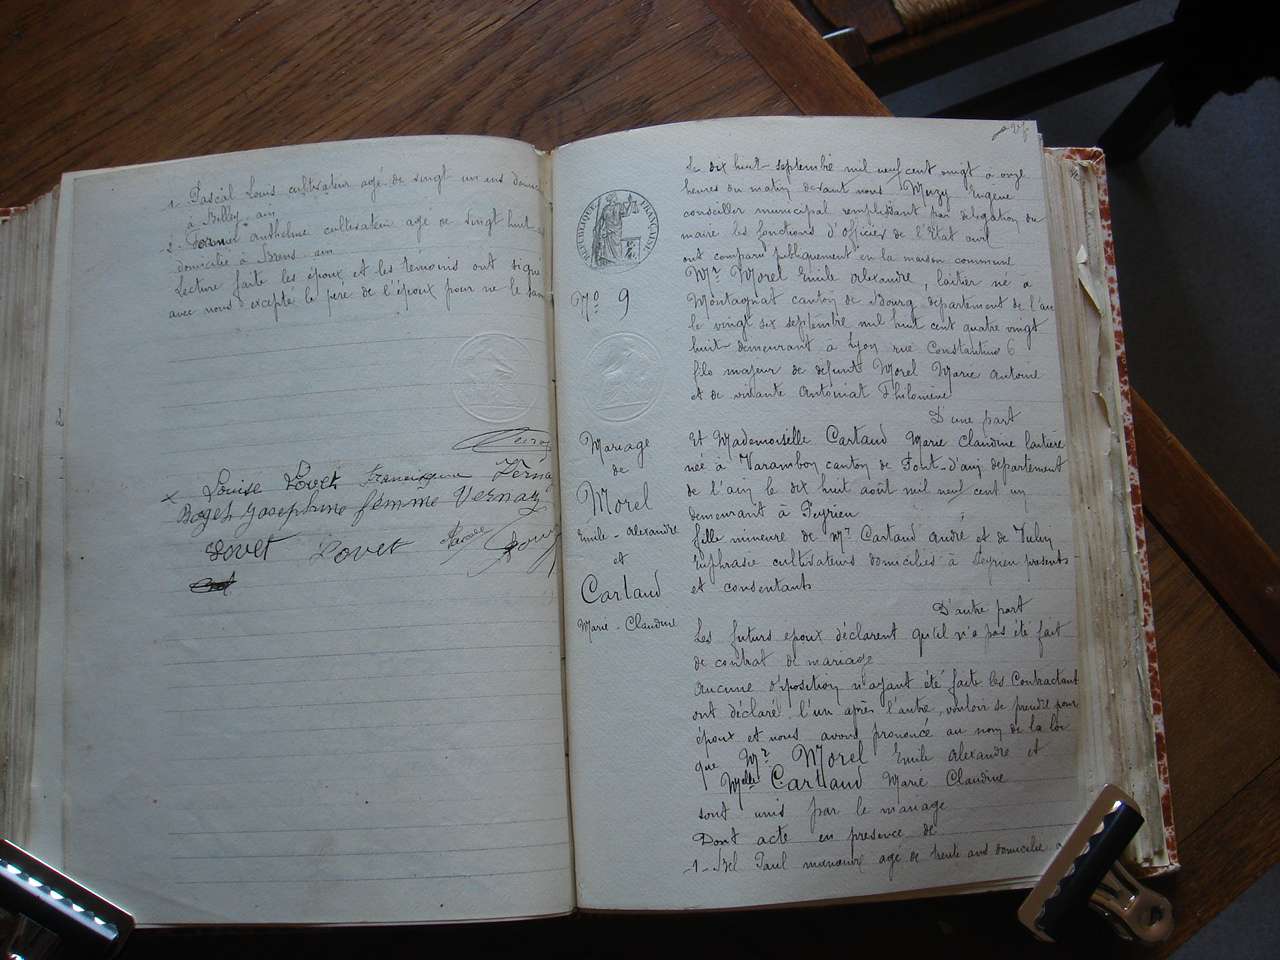 1 - Pascal Louis cultivateur agé de vingt un ans
à Belley ain
2 - anthelme cultivateur agé de vingt huit
domicilié à Brens ain
Lecture faite les époux et les temoins ont signé
avec nous excepté le père de l'époux pour ne le
Louise Lovet
Josephine femme Vernaz
Lovet Lovet
RÉPUBLIQUE FRANÇAISE
No 9
Mariage
de
Morel
Emile - Alexandre
et
Cartaud
Marie - Claudine
Le dix huit septembre mil neuf cent vingt à onze
heures du matin devant nous Muzy Eugène
conseiller municipal remplissant par délégation du
maire les fonctions d'officier de l'Etat civil
ont comparu publiquement en la maison commune
Mr Morel Emile Alexandre, laitier né à
Montagnat canton de Bourg departement de l'ain
le vingt six septembre mil huit cent quatre vingt
huit demeurant à Lyon rue Constantine 6
fils majeur de defunt Morel Marie Antoine
et de vivante Antoniat Philomène
D'une part
Et Mademoiselle Cartaud Marie Claudine laitière
née à Varambon canton de Pont-d'ain departement
de l'ain le dix huit août mil neuf cent un
demeurant à Peyrieu
fille mineure de Mr Cartaud André et de
Euphrasie cultivateurs domiciliés à Peyrieu presents
et consentants
D'autre part
Les futurs epoux déclarent qu'il n'a pas été fait
de contrat de mariage
Aucune oposition n'ayant été faite les Contractant
ont déclaré l'un après l'autre, vouloir se prendre pour
époux et nous avons prononcé au nom de la loi
que Mr Morel Emile Alexandre et
Melle Cartaud Marie Claudine
sont unis par le mariage
Dont acte en presence de
- 1 - Bel Paul manouvre agé de trente ans domicilié a